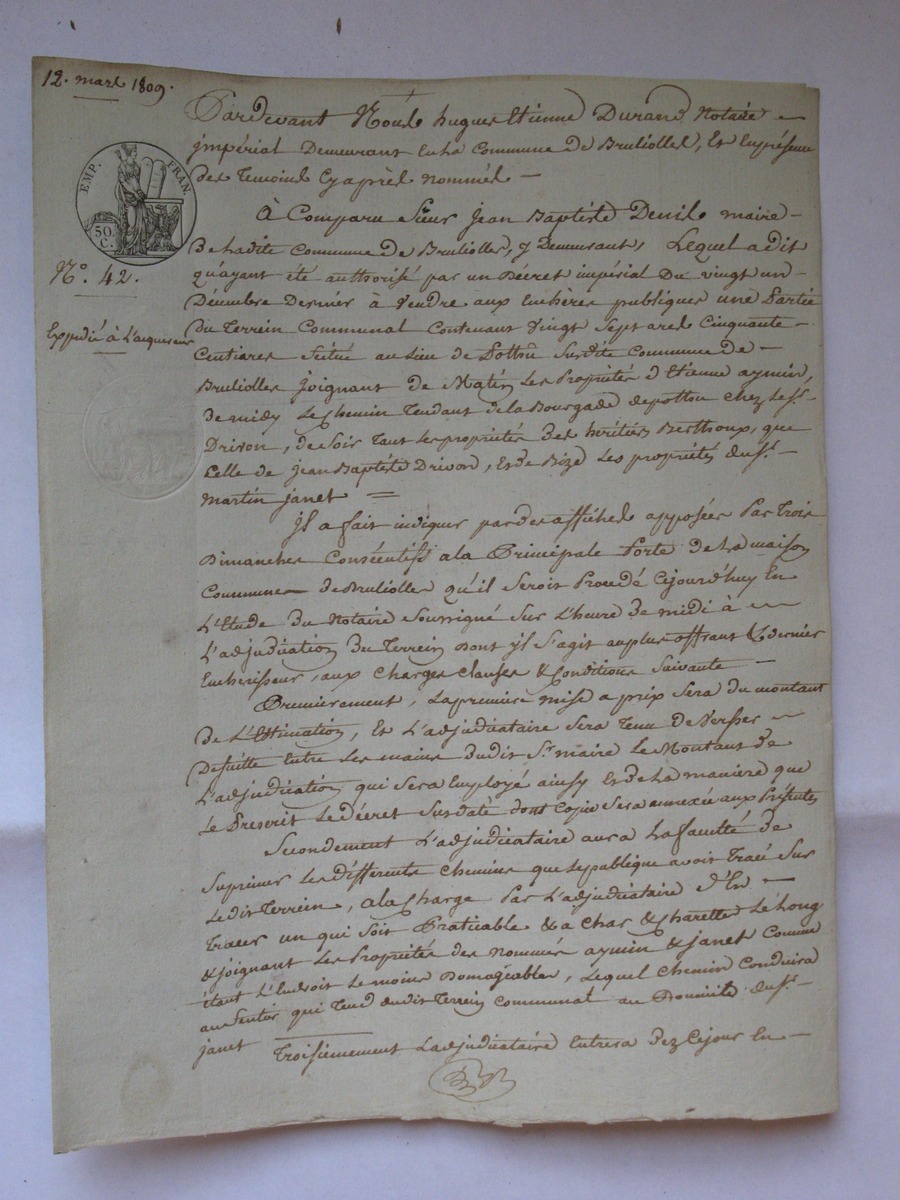 12. mars 1809.
EMP. FRAN.
50 C.
N.o 42.
Expedié à L'acquereur
Pardevant Nous hugues Etienne Durand Notaire
impérial Demeurant En La Commune de Brullioles, Et En présence
des Temoins Cyaprès nommés
À Comparu Sieur Jean Baptiste Denis maire
de Ladite Commune de Brullioles, y Demeurant, Lequel a dit
qu'ayant été authorisé par un Décret impérial Du vingt un
Décembre Dernier à Vendre aux Enchères publiques une Partie
du Terrein Communal Contenant Vingt Sept ares Cinquante
Centiares Scitué au Lieu de Sur dite Commune de
Brullioles joignant de Matin Les Propriétés d'Etienne aymin,
de midy Le Chemin Tendant de la Bourgade chez Le Sr.
Drivon, de Soir Tant Les propriétés des héritiers Berthoux, que
Celle de jean Baptiste Drivon, Et de Bize Les propriétés du Sr.
Martin janet
jl a fait indiquer par des affiches apposées Par Trois
Dimanches Consécutifs a la Principale Porte de La maison
Commune de Brullioles qu'il Seroit Procédé Cejourd'huy En
L'Etude du Notaire Soussigné Sur L'heure de midi à
L'adjudication Du Terrein dont jl S'agit au plus offrant & dernier
Enchérisseur, aux Charges Clauses & Conditions Suivante
Premièrement, La première mise a prix Sera du montant
de L'Estimation, Et L'adjudicataire Sera Tenu De Verser
Desuitte Entre Les mains dudit Sr. maire Le Montant de
L'adjudication qui Sera Employé ainsy Et de La manière que
Le Prescrit Le décret Sus daté dont Copie Sera annexée aux Présentes
Secondement L'adjudicataire aura La faculté de
Suprimer les différents Chemins que Le publique avoit Tracé Sur
Ledit Terrein, a la Charge Par L'adjudicataire d'En
Tracer un qui Soit Praticable & a Char & Charette Le Long
& joignant Les Propriétés des nommés aymin & janet Comme
étant L'Endroit Le moins domageable, Lequel Chemin Conduira
au Sentier qui Tend dudit Terrein Communal au Domicile du Sr.
janet
Troisiemement L'adjudicataire Entrera dez Cejour En